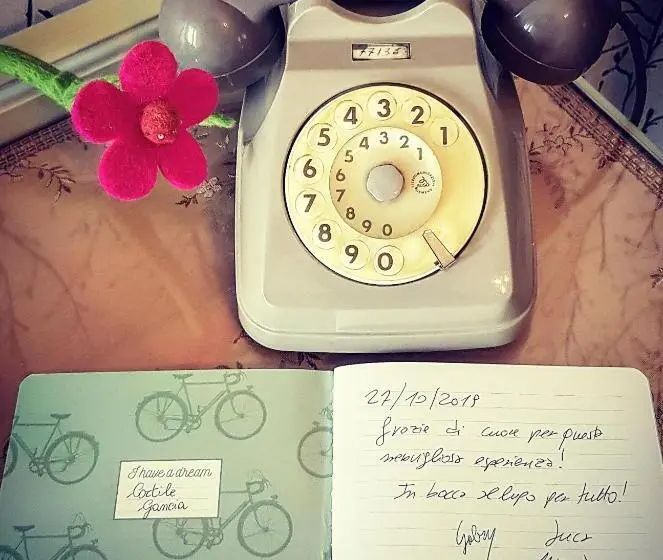 1
2
3
4
5
6
7
8
9
0
1
2
3
4
5
6
7
8
9
0
I have a dream
Cortile
Gancia
27/10/2019
Grazie di cuore per questa
meravigliosa esperienza!
In bocca al lupo per tutto!
Gabry Luca